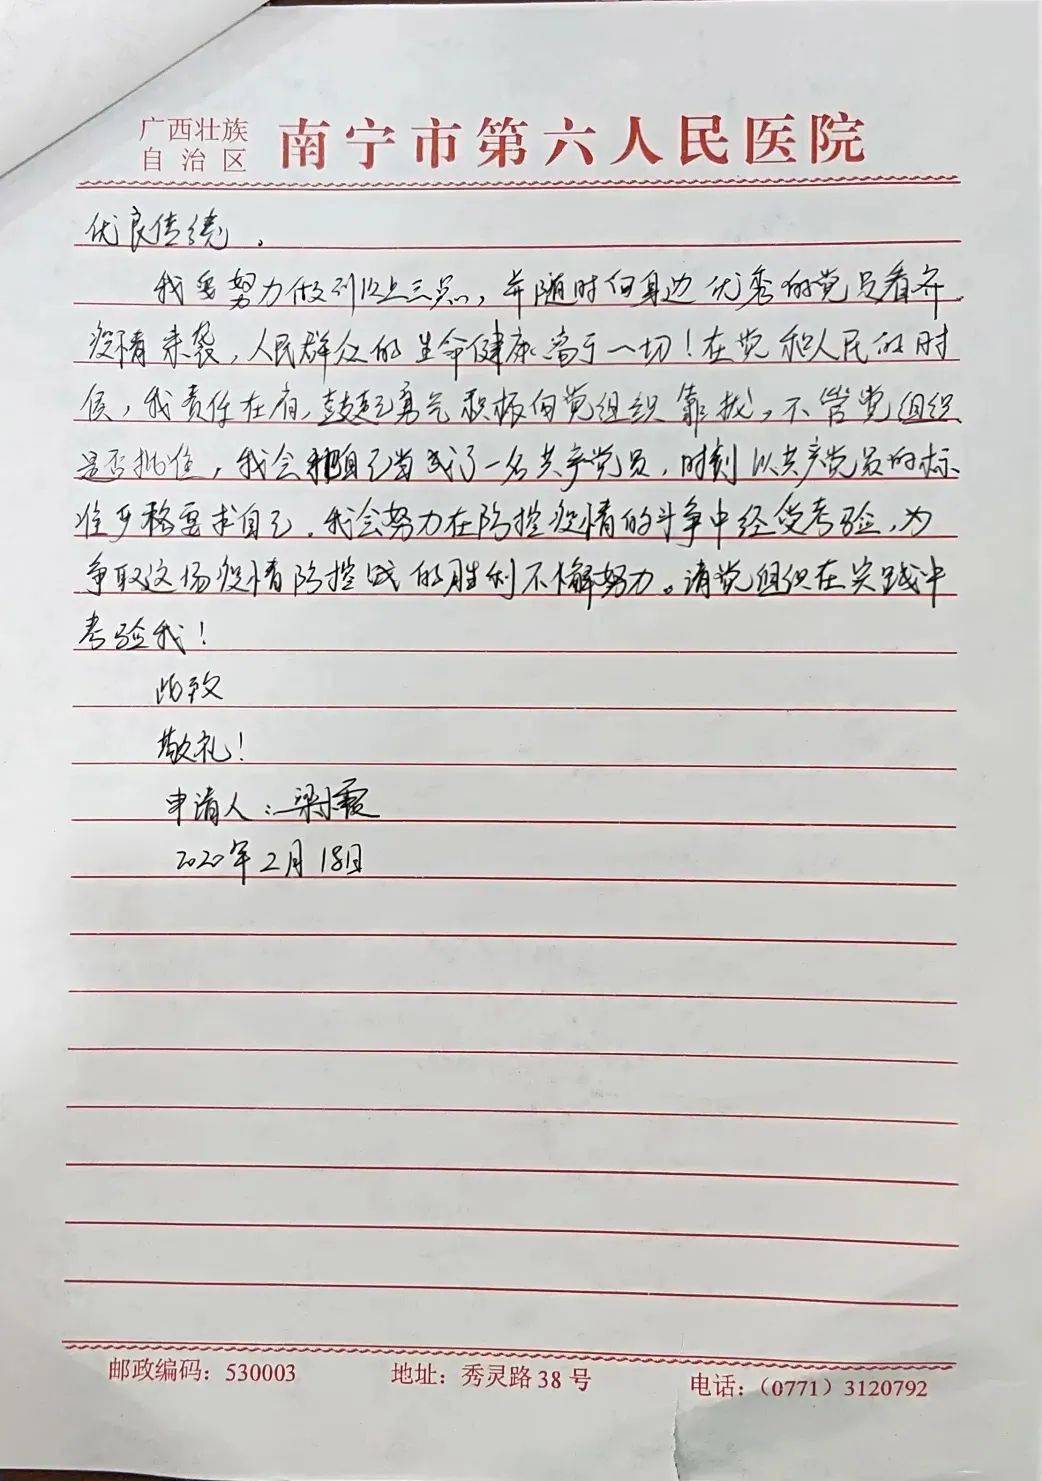 广西壮族
自治区
南宁市第六人民医院
优良传统。
我要努力做到以上三点，并随时向身边优秀的党员看齐。
疫情来袭，人民群众的生命健康高于一切！在党和人民的时
候，我责任在肩，鼓起勇气积极向党组织靠拢，不管党组织
是否批准，我会把自己当成了一名共产党员，时刻以共产党员的标
准严格要求自己。我会努力在防控疫情的斗争中经受考验，为
争取这场疫情防控战的胜利不懈努力。请党组织在实践中
考验我！
此致
敬礼！
申请人：梁小霞
2020年2月18日
邮政编码：530003
地址：秀灵路38号
电话：（0771）3120792